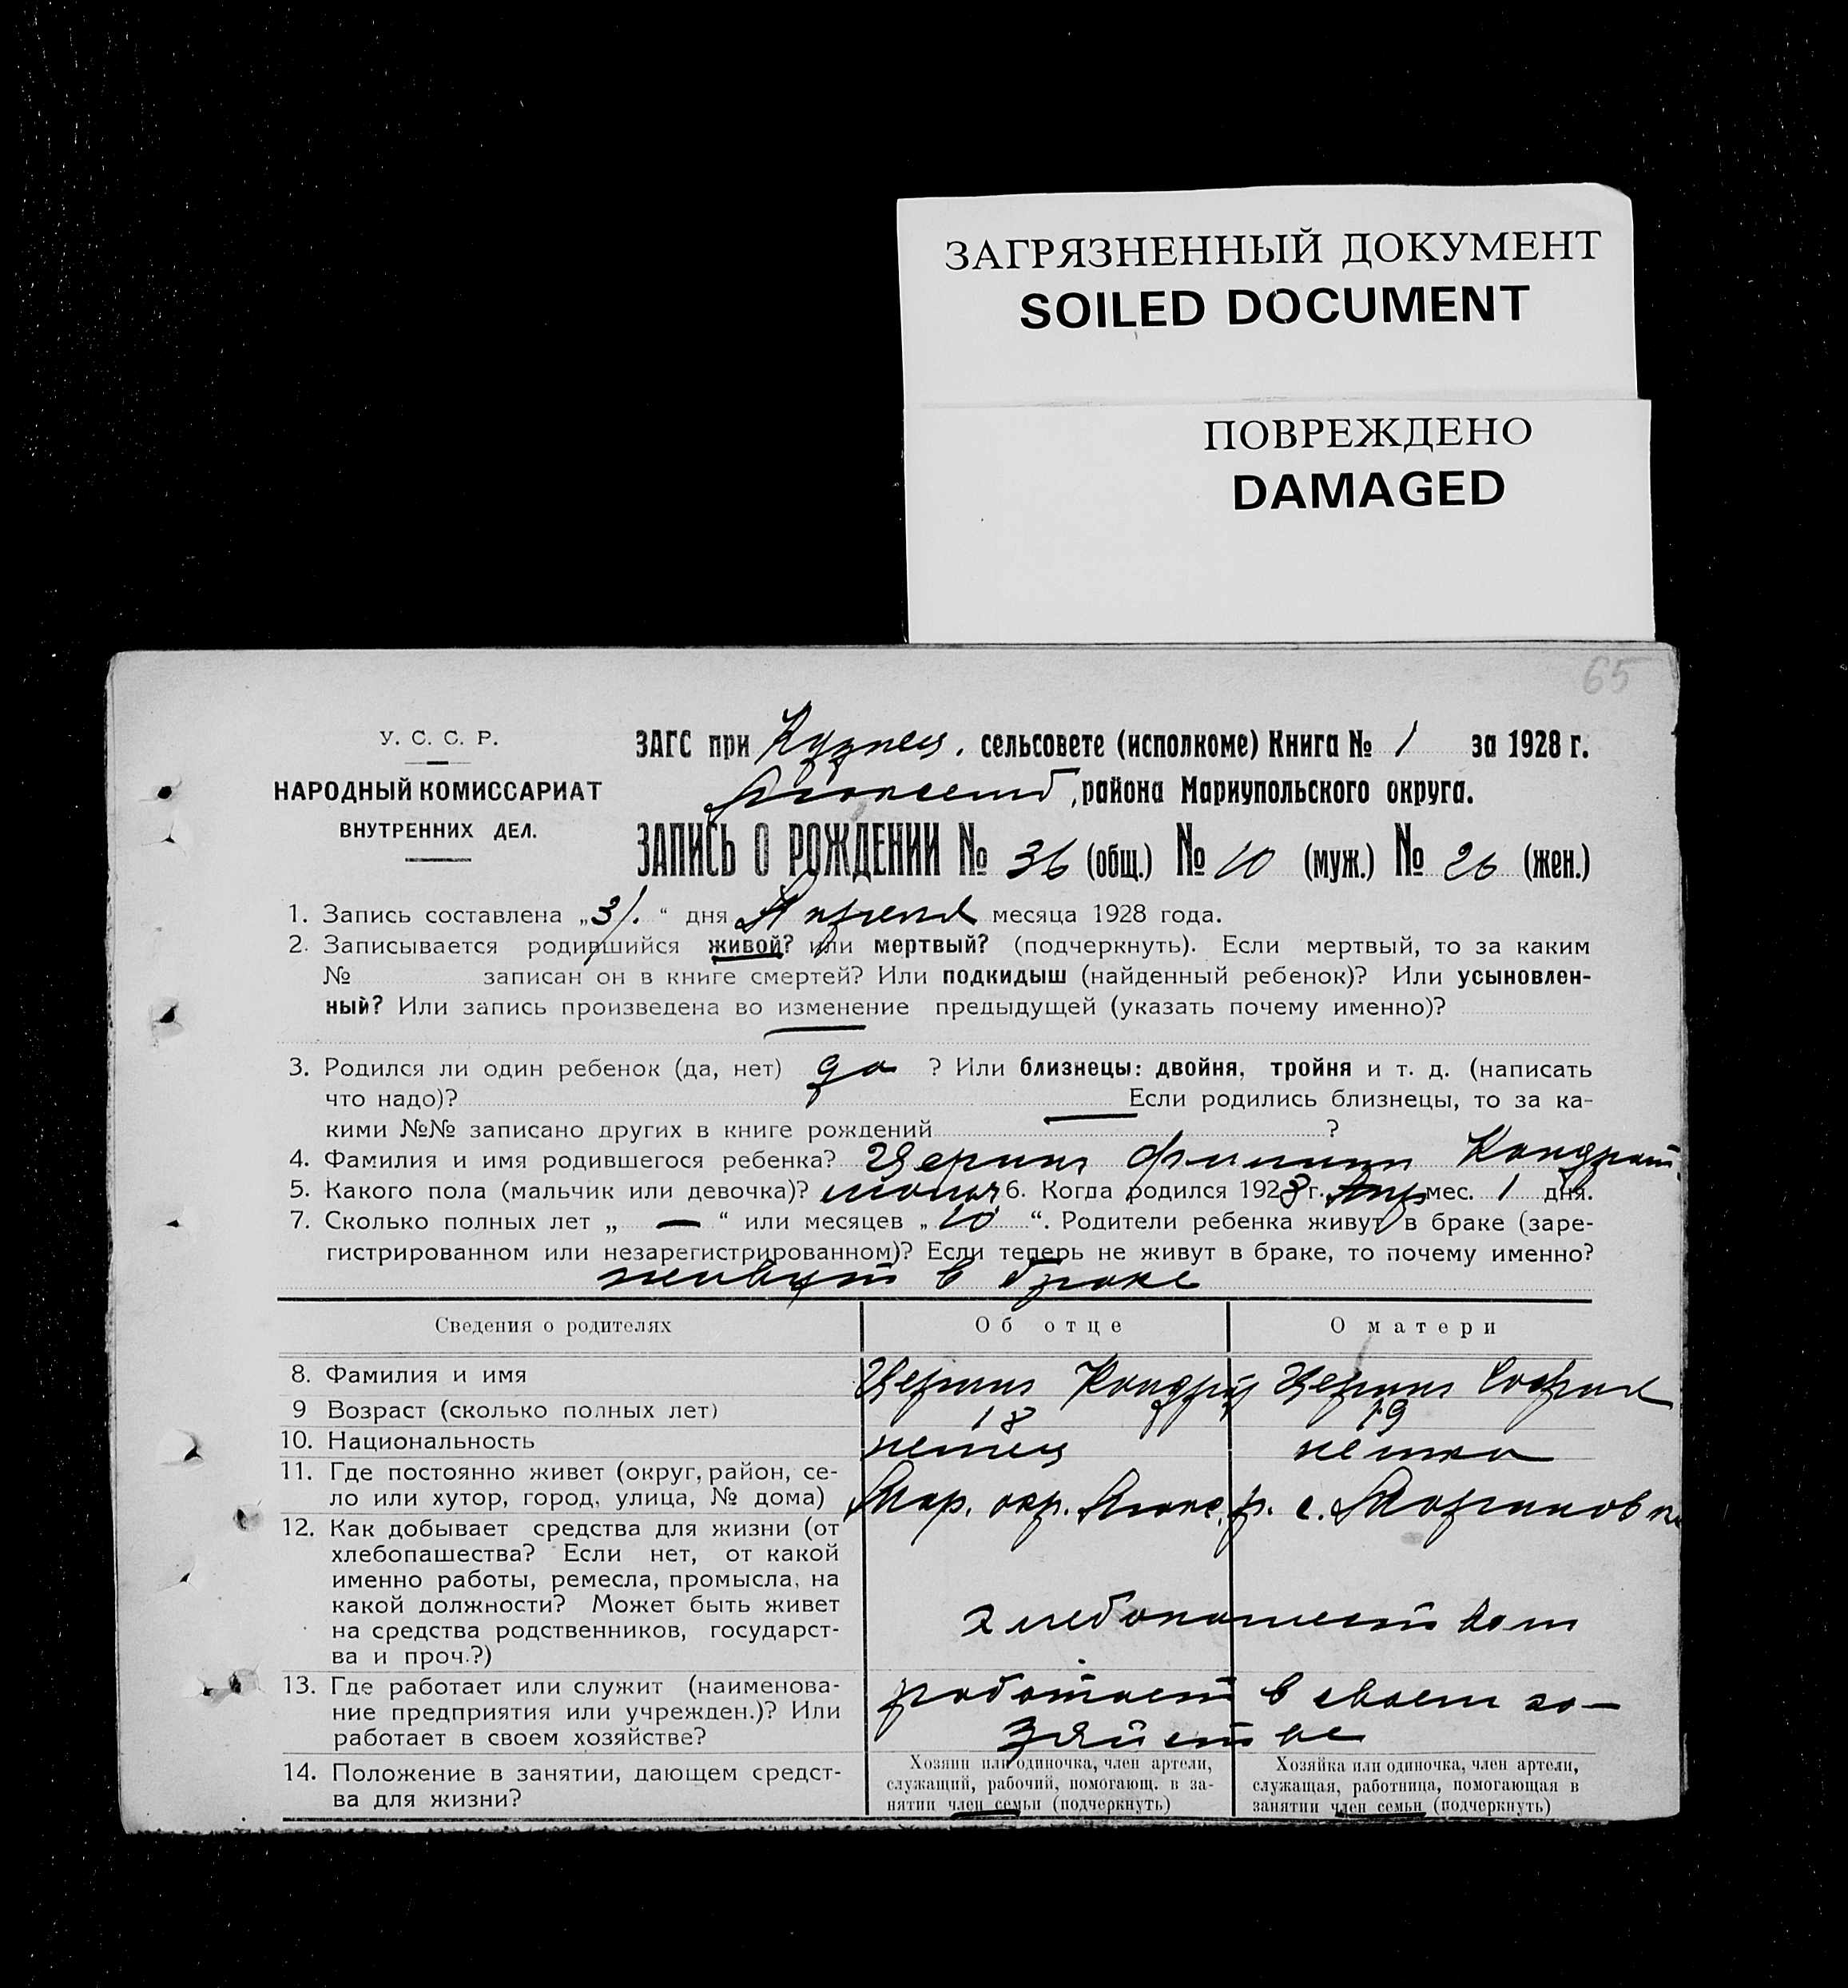 ЗАГРЯЗНЕННЫЙ ДОКУМЕНТ
SOILED DOCUMENT
ПОВРЕЖДЕНО
DAMAGED
65
У. С. С. Р.
НАРОДНЫЙ КОМИССАРИАТ
ВНУТРЕННИХ ДЕЛ.
ЗАГС при Кузнец. сельсовете (исполкоме) Книга № 1 за 1928 г.
района Мариупольского округа.
ЗАПИСЬ О РОЖДЕНИИ № 36 (общ.) № 10 (муж.) № 26 (жен.)
1. Запись составлена „3/. “ дня Апреля месяца 1928 года.
2. Записывается родившийся живой? или мертвый? (подчеркнуть). Если мертвый, то за каким
№ записан он в книге смертей? Или подкидыш (найденный ребенок)? Или усыновлен-
ный? Или запись произведена во изменение предыдущей (указать почему именно)?
3. Родился ли один ребенок (да, нет) да ? Или близнецы: двойня, тройня и т. д. (написать
что надо)? Если родились близнецы, то за ка-
кими №№ записано других в книге рождений ?
4. Фамилия и имя родившегося ребенка? Церинг Филипп Кондрат.
5. Какого пола (мальчик или девочка)? 6. Когда родился 1928 г. Апр мес. 1 дня.
7. Сколько полных лет „ — “ или месяцев „ 10 “. Родители ребенка живут в браке (заре-
гистрированном или незарегистрированном)? Если теперь не живут в браке, то почему именно?
живут в браке
Сведения о родителях Об отце О матери
8. Фамилия и имя Церинг Кондрат Церинг София
9 Возраст (сколько полных лет) 18 19
10. Национальность немец немка
11. Где постоянно живет (округ, район, се-
ло или хутор, город, улица, № дома) Мар. окр. Люкс. р. с.
12. Как добывает средства для жизни (от
хлебопашества? Если нет, от какой
именно работы, ремесла, промысла, на
какой должности? Может быть живет
на средства родственников, государст-
ва и проч.?)
хлебопашеством
13. Где работает или служит (наименова-
ние предприятия или учрежден.)? Или
работает в своем хозяйстве?
работает в своем хо-
зяйстве
14. Положение в занятии, дающем средст-
ва для жизни?
Хозяин или одиночка, член артели,
служащий, рабочий, помогающ. в за-
нятии член семьи (подчеркнуть)
Хозяйка или одиночка, член артели,
служащая, работница, помогающая в
занятии член семьи (подчеркнуть)